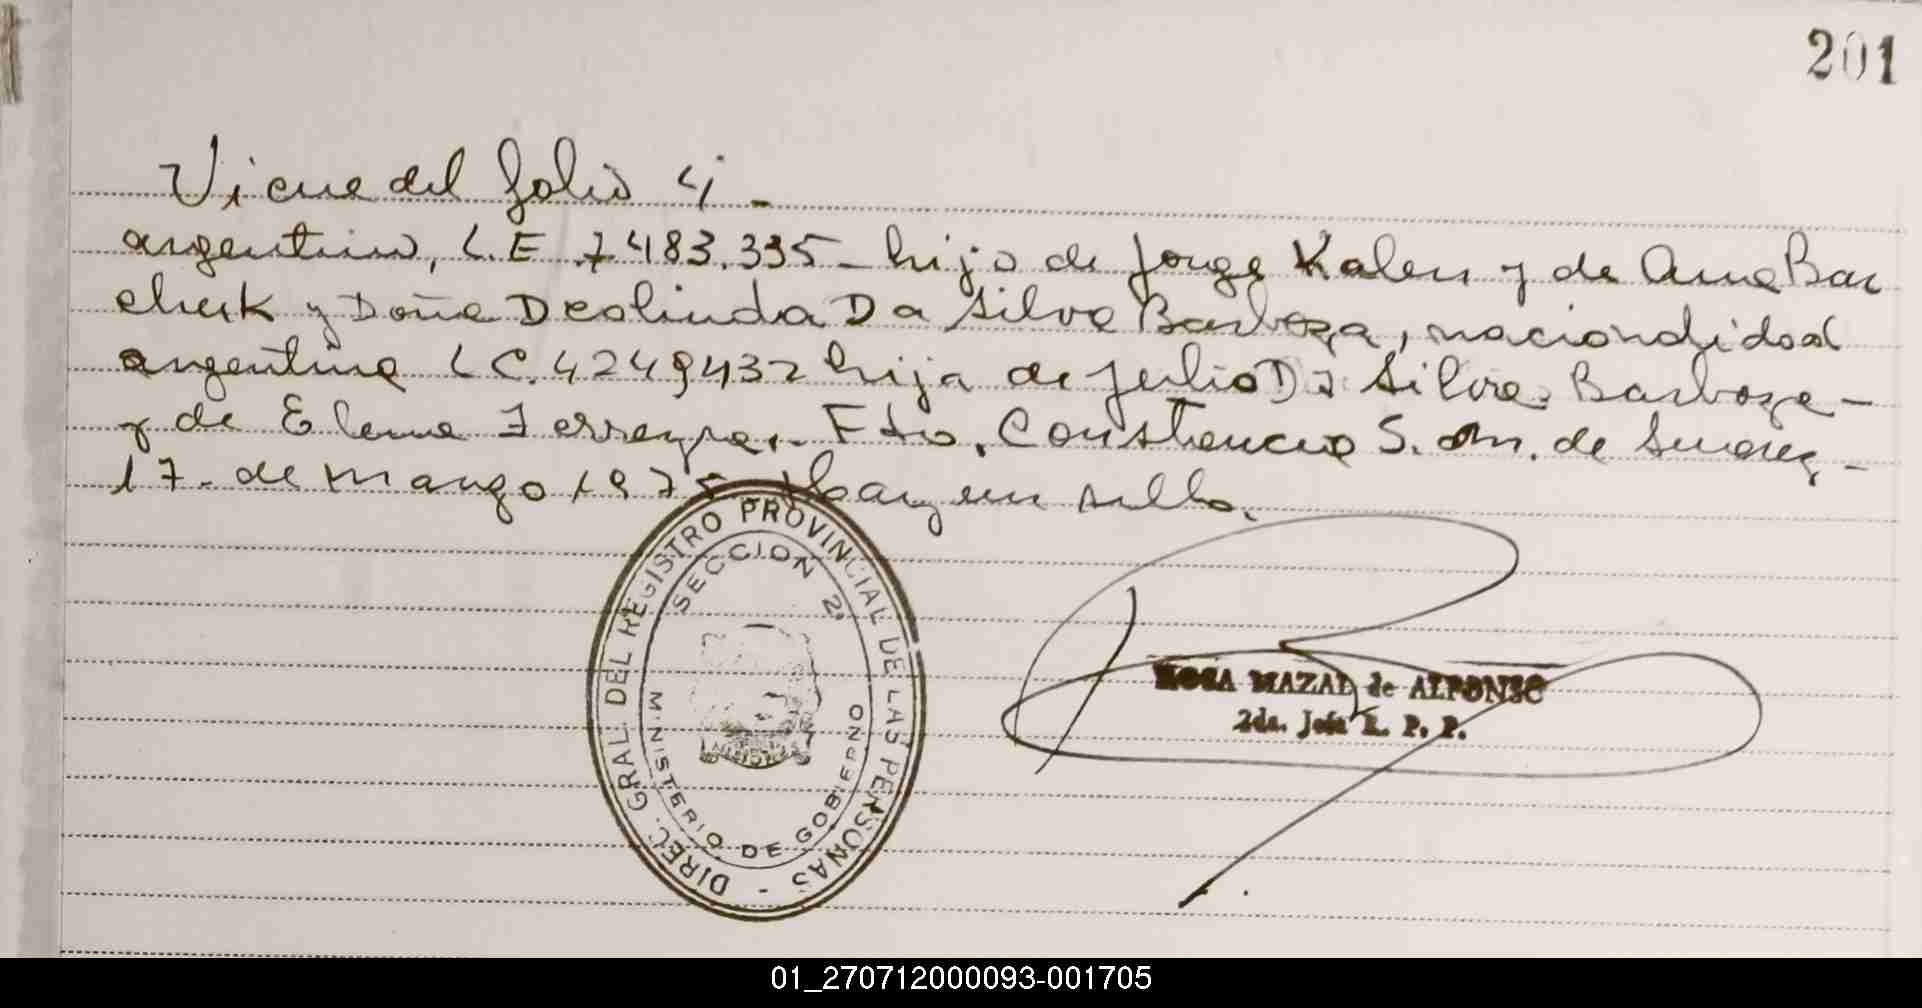 201
Viene del folio 4 -
argentino, L.E 7483.335 - hijo de Jorge Kalen y de Ana Bar
chuk y Doña Deolinda Da Silva Barboza, nacionalidad
argentina L C. 4249432 hija de Julio Da Silva Barboza -
y de Elena Ferreyra,. Fdo. Constancia S. M. de Suarez -
17. de marzo 1975 Hay un sello.
DIREC. GRAL. DEL REGISTRO PROVINCIAL DE LAS PERSONAS -
SECCION 2ª
MINISTERIO DE GOBIERNO
ROSA MAZAL de ALFONSO
2da. Jefa R. P. P.
01_270712000093-001705